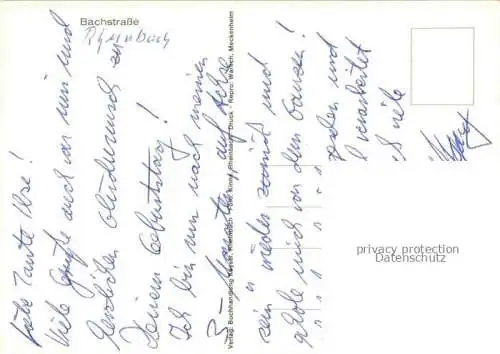 Bachstraße
Rheinbach
Liebe Tante Ilse!
Viele Grüße auch von mir und
herzlichen Glückwunsch zu
Deinem Geburtstag!
Ich bin nun nach meinen
3 - Monaten auf Achse
sein wieder zurück und
erhole mich von dem Ganzen!
und
verarbeitet
viele
Verlag: Buchhandlung Kayser, Rheinbach · Foto: König, Rheinbach · Druck + Repro: Warlich, Meckenheim
privacy protection
Datenschutz